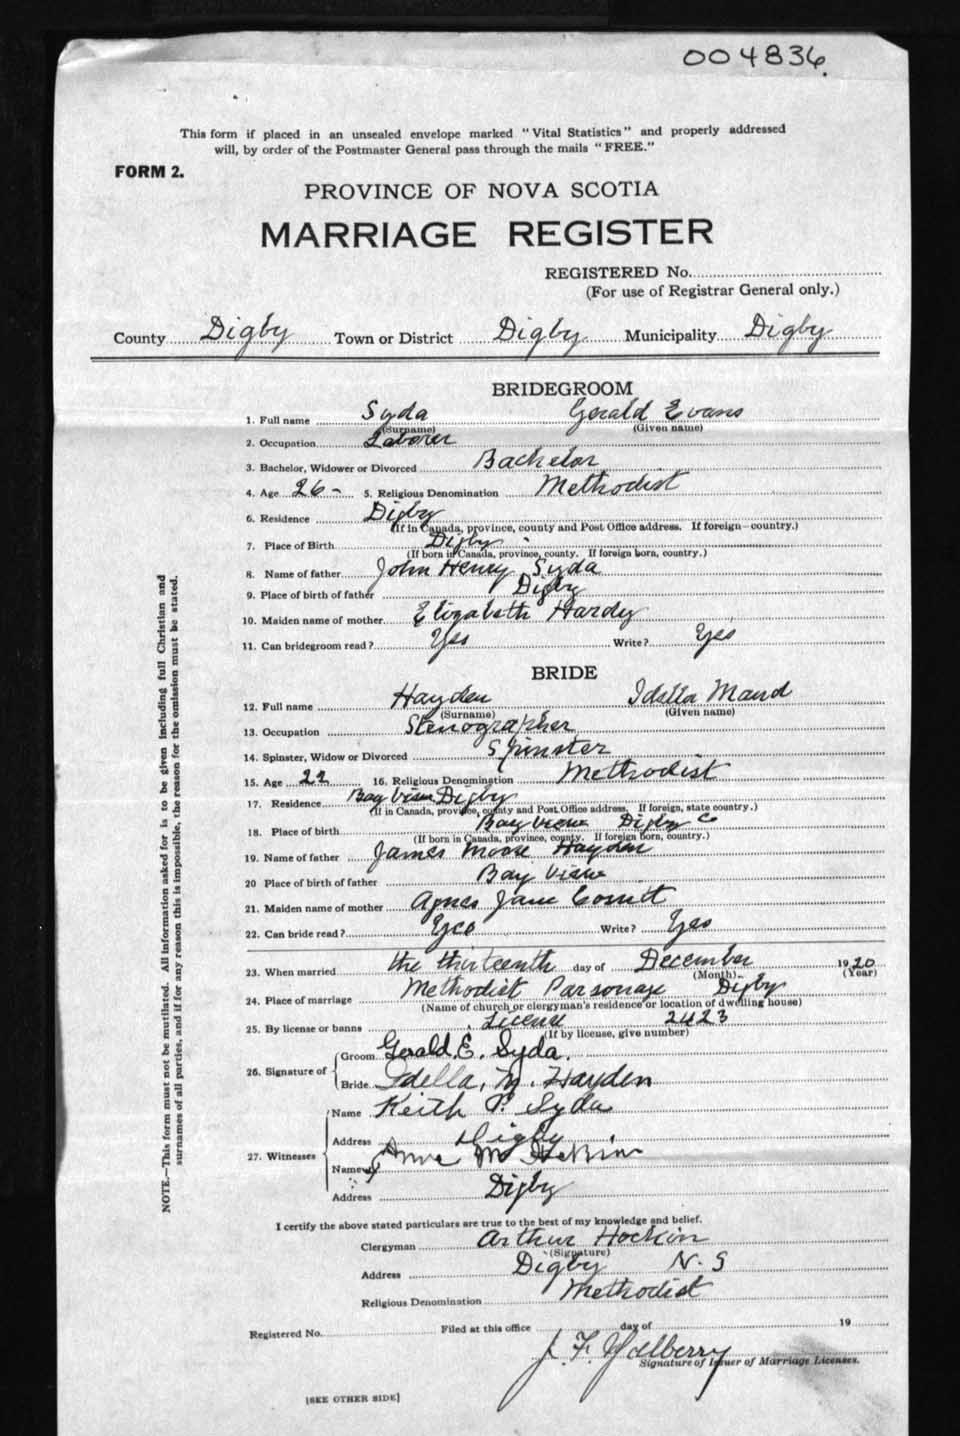 004836.
This form if placed in an unsealed envelope marked "Vital Statistics" and properly addressed
will, by order of the Postmaster General pass through the mails "FREE."
FORM 2.
PROVINCE OF NOVA SCOTIA
MARRIAGE REGISTER
REGISTERED No.
(For use of Registrar General only.)
County Digby Town or District Digby Municipality Digby
BRIDEGROOM
1. Full name Syda Gerald Evans
(Surname) (Given name)
2. Occupation Laborer
3. Bachelor, Widower or Divorced Bachelor
4. Age 26 - 5. Religious Denomination Methodist
6. Residence Digby
(If in Canada, province, county and Post Office address. If foreign—country.)
7. Place of Birth Digby
(If born in Canada, province, county. If foreign born, country.)
8. Name of father John Henry Syda
9. Place of birth of father Digby
10. Maiden name of mother Elizabeth Hardy
11. Can bridegroom read? Yes Write? Yes
BRIDE
12. Full name Hayden Idella Maud
(Surname) (Given name)
13. Occupation Stenographer
14. Spinster, Widow or Divorced Spinster
15. Age 22 16. Religious Denomination Methodist
17. Residence Bay View Digby
(If in Canada, province, county and Post Office address. If foreign, state country.)
18. Place of birth Bay View Digby Co
(If born in Canada, province, county. If foreign born, country.)
19. Name of father James Moore Hayden
20 Place of birth of father Bay View
21. Maiden name of mother Agnes Jane
22. Can bride read? Yes Write? Yes
23. When married the thirteenth day of December 1920
(Month) (Year)
24. Place of marriage Methodist Parsonage Digby
(Name of church or clergyman's residence or location of dwelling house)
25. By license or banns License 2423
(If by license, give number)
26. Signature of
Groom Gerald. E. Syda.
Bride Idella. M. Hayden
27. Witnesses
Name Keith P. Syda
Address Digby
Name Anna M Hockin
Address Digby
I certify the above stated particulars are true to the best of my knowledge and belief.
Clergyman Arthur Hockin
(Signature)
Address Digby N. S
Religious Denomination Methodist
Registered No. Filed at this office day of 19
J. F.
Signature of Issuer of Marriage Licenses.
[SEE OTHER SIDE]
NOTE.—This form must not be mutilated. All information asked for is to be given including full Christian and
surnames of all parties, and if for any reason this is impossible, the reason for the omission must be stated.